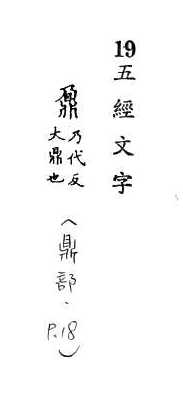 19 五經文字
鼐
乃代反
大鼎也
（鼎部．P.18）